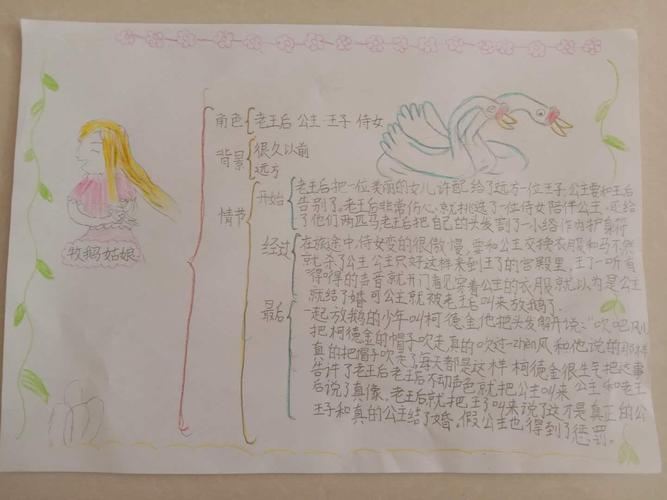 牧鹅姑娘
角色 老王后 公主 王子 侍女
背景 很久以前
远方
情节
开始 老王后把一位美丽的女儿许配给了远方一位王子公主要和王后
告别了。老王后非常伤心,就挑选了一位侍女陪伴公主,还给
了他们两匹马老王后把自己的头发割了一小绺作为护身符
经过 在旅途中,侍女变的很傲慢,要和公主交换衣服和马不然
就杀了公主公主只好这样来到王子的宫殿里,王子一听有
得得的声音就开门看见穿着公主的衣服就以为是公主
就结了婚可公主就被老王后叫来放鹅了.
最后 一起放鹅的少年叫柯德金他把头发解开说:"吹吧风儿
把柯德金的帽子吹走真的吹过一zhen风和他说的那样
真的把帽子吹走了,每天都是这样柯德金很生气把这事
告诉了老王后老王后不动声色就把公主叫来公主和老王
后说了真像.老王后就把王子叫来说了这才是真正的公
王子和真的公主结了婚.假公主也得到了惩罚。